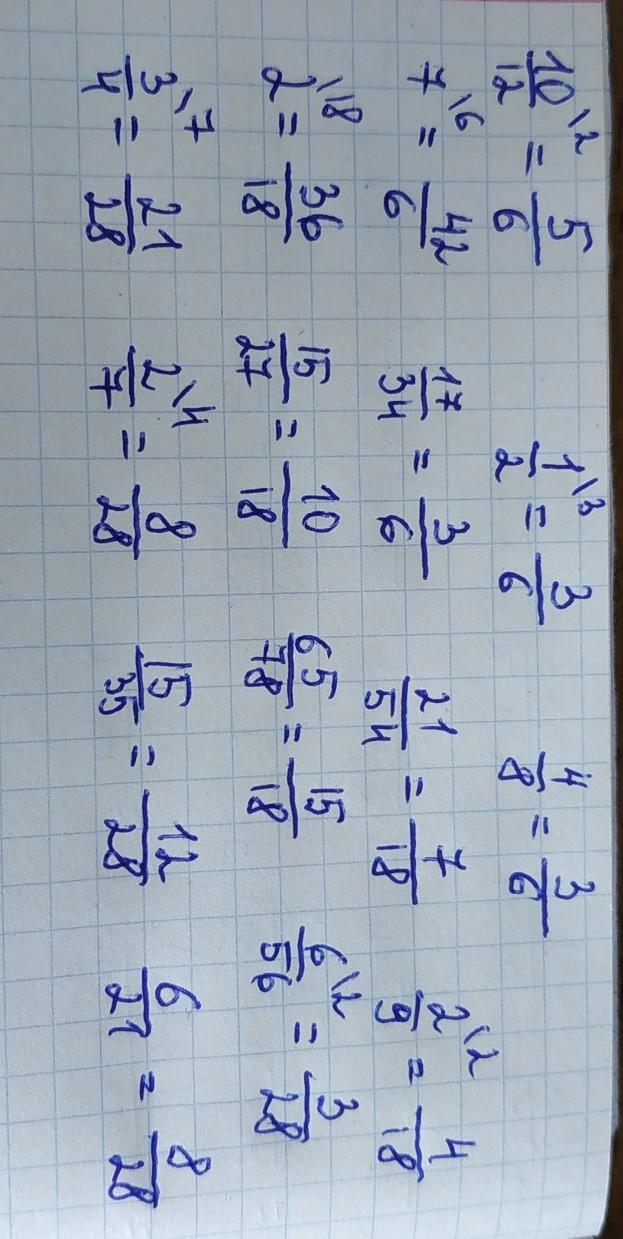 10/12 \2 = 5/6 1/2 \3 = 3/6 4/8 = 3/6
7 \6 = 42/6 17/34 = 3/6 21/54 = 7/18 2/9 \2 = 4/18
2 \18 = 36/18 15/27 = 10/18 65/78 = 15/18 6/56 \2 = 3/28
3/4 \7 = 21/28 2/7 \4 = 8/28 15/35 = 12/28 6/21 = 8/28